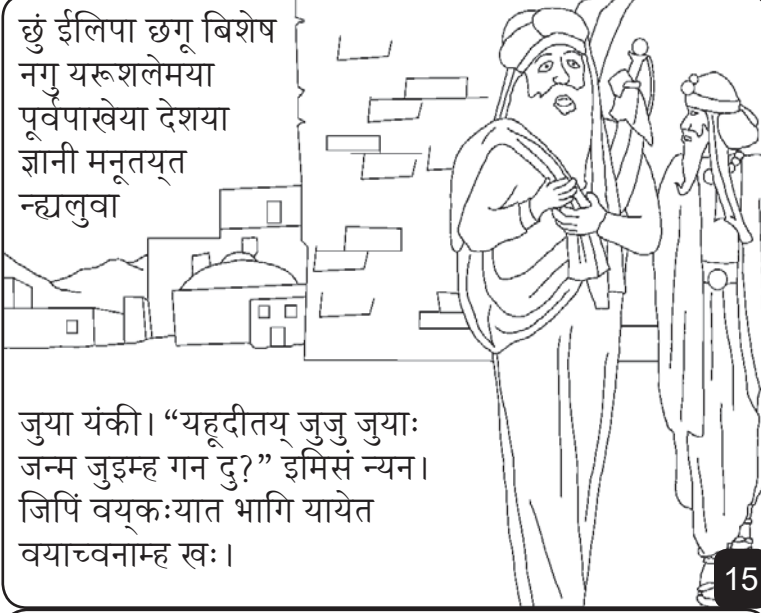 छुं ईलिपा छगू बिशेष
नगु यरूशलेमया
पूर्वपाखेया देशया
ज्ञानी मनूतय्‌त
न्ह्यलुवा
जुया यंकी। “यहूदीतय् जुजु जुयाः
जन्म जुइम्ह गन दु?” इमिसं न्यन।
जिपिं वय्‌कःयात भागि यायेत
वयाच्वनाम्ह खः।
15